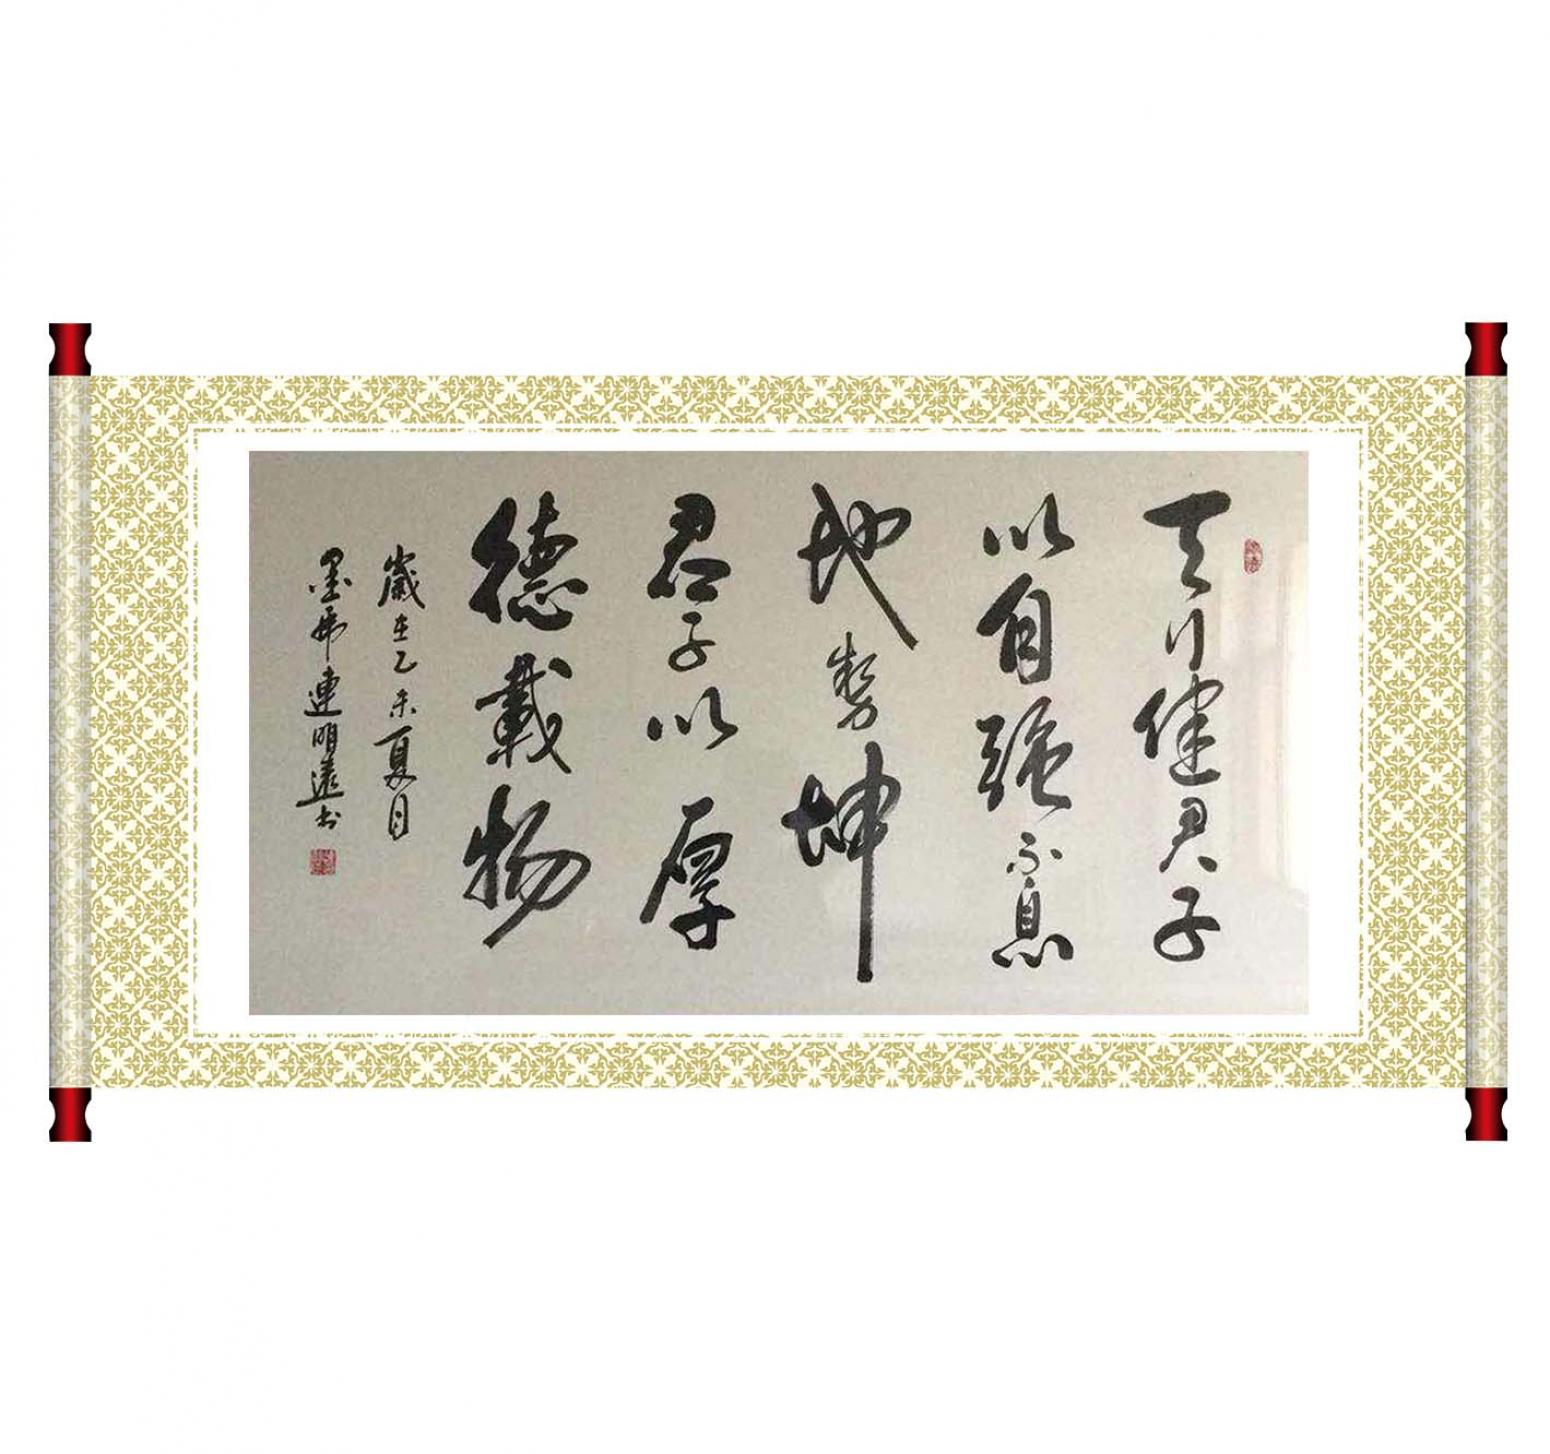 天行健君子
以自强不息
地势坤
君子以厚
德載物
歲在乙未夏月
墨弗連明遠书